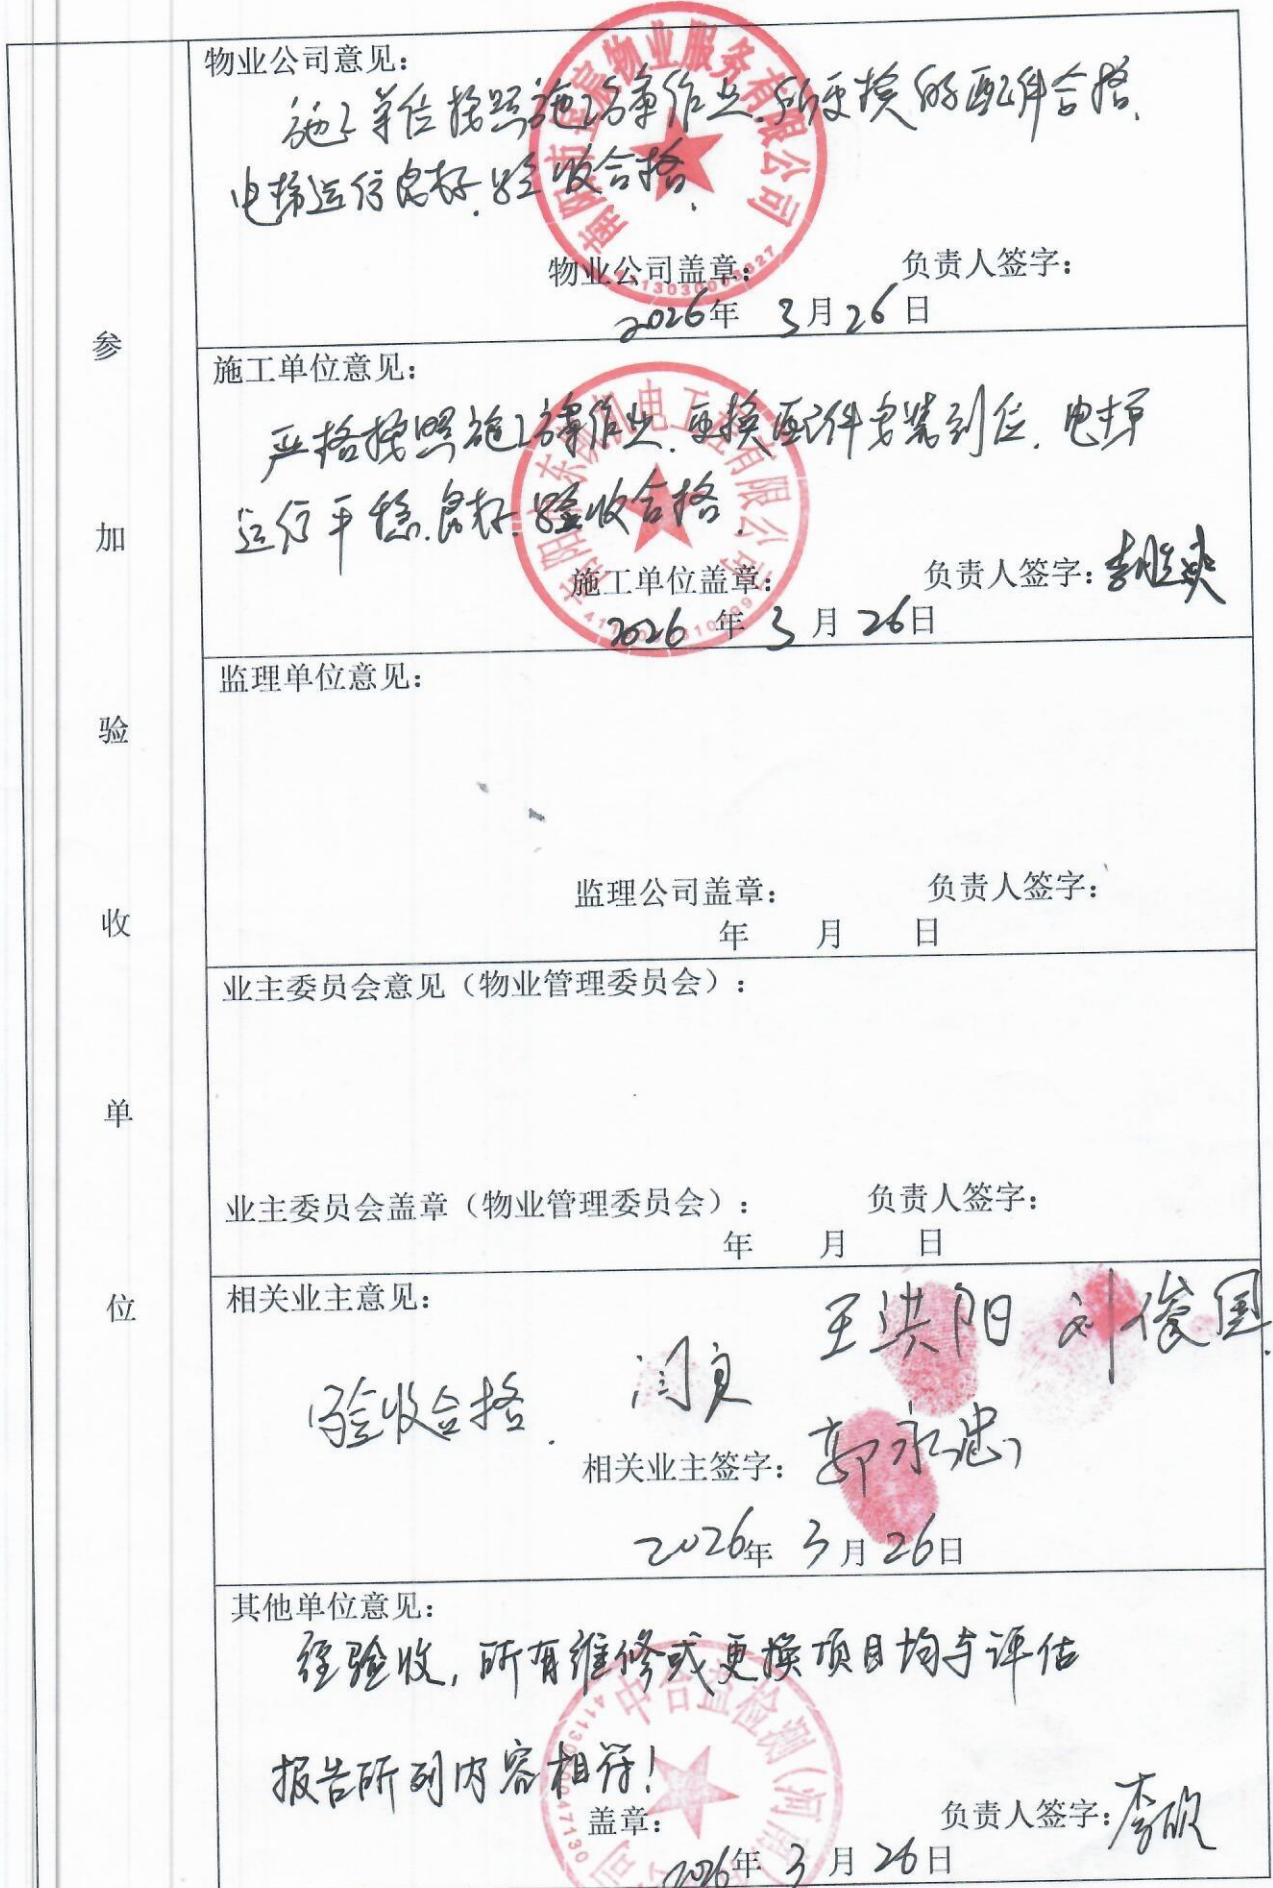 物业公司意见：
施工单位按照施工方案作业.所更换的配件合格.
电梯运行良好.验收合格.
物业公司盖章： 负责人签字：
2026年 3月26日
施工单位意见：
严格按照施工方案作业.更换配件安装到位.电梯
运行平稳.良好.验收合格.
施工单位盖章： 负责人签字：
2026年 3月26日
监理单位意见：
监理公司盖章： 负责人签字：
年 月 日
业主委员会意见（物业管理委员会）：
业主委员会盖章（物业管理委员会）： 负责人签字：
年 月 日
相关业主意见：
王洪阳 刘俊国
验收合格.
相关业主签字： 郭永忠
2026年 3月26日
其他单位意见：
经验收，所有维修或更换项目均与评估
报告所列内容相符！
盖章： 负责人签字：李欣
2026年 3月26日
参加验收单位
物业服务有限公司
机电工程有限公司
中合盘检测（河南）